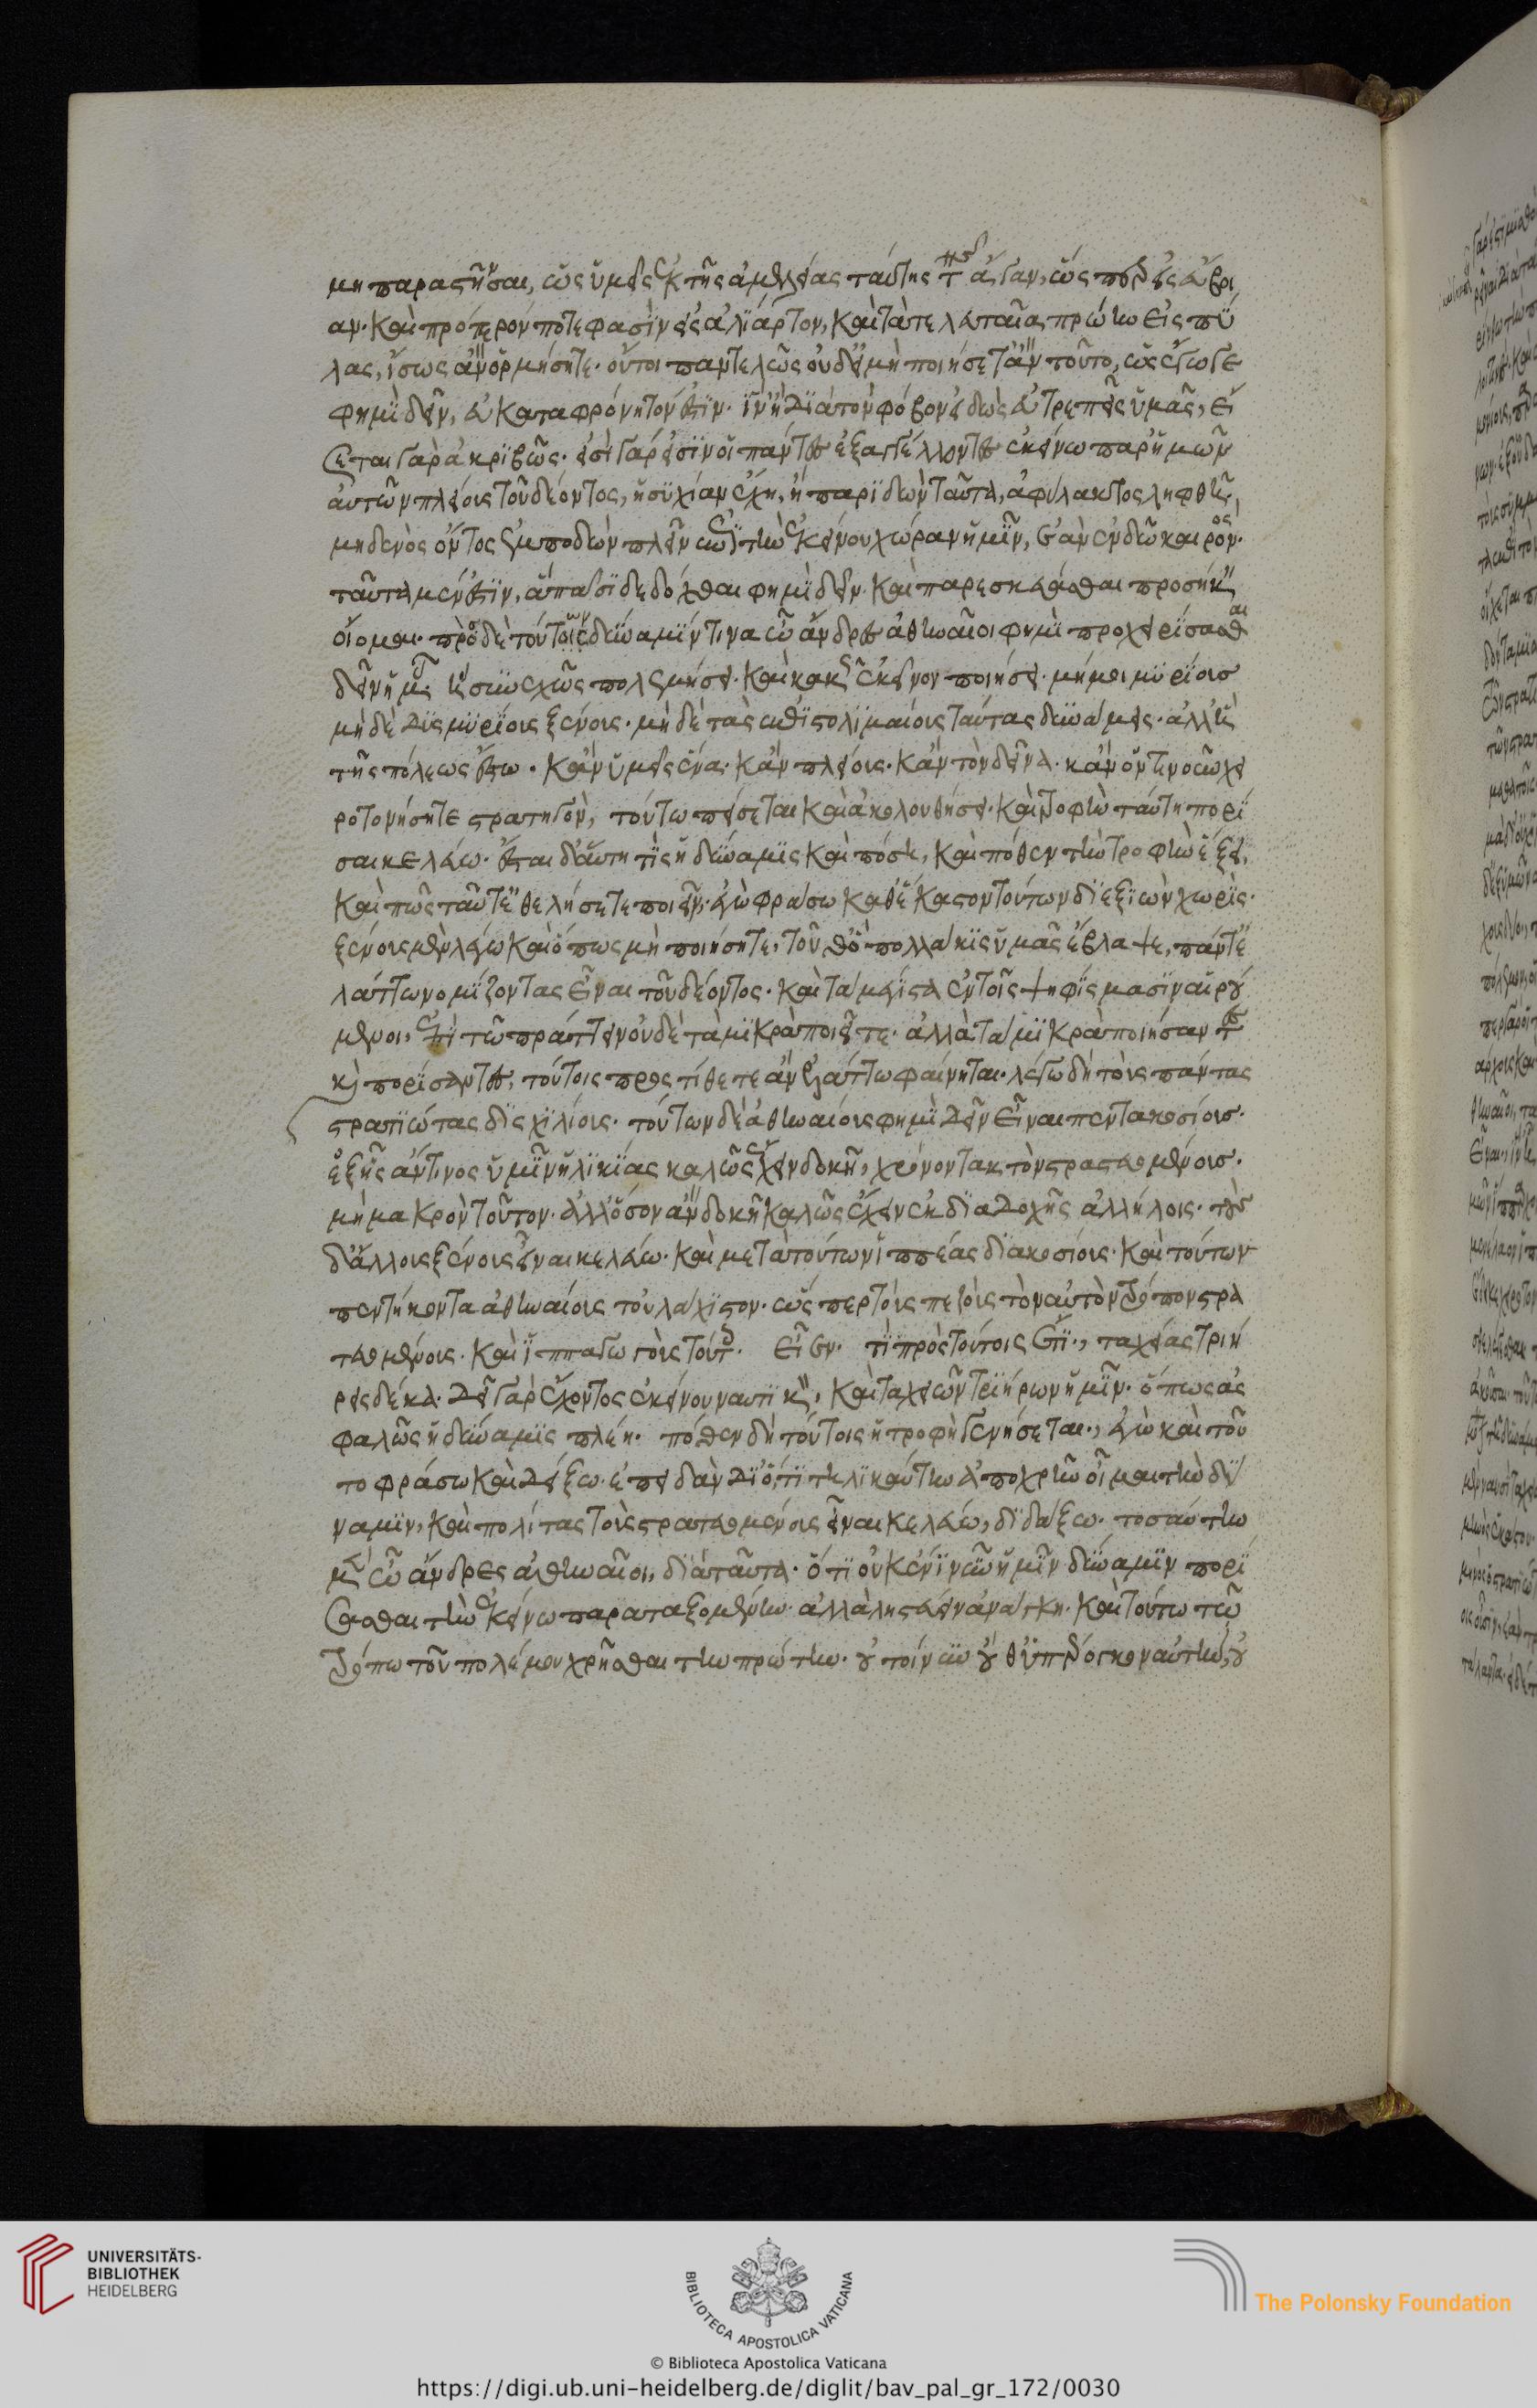 μη παραστῆσαι, ὡς ὑμεῖς ἐκ τῆς ἀμελείας ταύτης τῆς ἄγαν, ὥσπερ εἰς εὔβοι
αν· καὶ πρότερόν ποτε φασὶν εἰς ἁλίαρτον, καὶ τὰ τελευταῖα πρώην εἰς πύ
λας, ἴσως ἂν ὁρμήσητε· οὔτοι παντελῶς οὐδ' εἰ μὴ ποιήσετ' ἂν τοῦτο, ὡς ἔγωγε
φημὶ δεῖν, εὐκαταφρόνητόν ἐστιν· ἵν' ἢ διὰ τὸν φόβον εἰδὼς εὐτρεπεῖς ὑμᾶς, εἴ
σεται γὰρ ἀκριβῶς· εἰσὶ γάρ εἰσιν οἱ πάντες ἐξαγγέλλοντες ἐκείνω παρ' ἡμῶν
αὐτῶν πλείους τοῦ δέοντος, ἡσυχίαν ἔχη, ἢ παριδὼν ταῦτα, ἀφύλακτος ληφθῆ,
μηδενὸς ὄντος ἐμποδὼν πλεῖν ἐπὶ τὴν ἐκείνου χώραν ἡμῖν, ἐὰν ἐνδῶ καιρόν·
ταῦτα μέν ἐστιν, ἃ πᾶσι δεδόχθαι φημὶ δεῖν· καὶ παρεσκευάσθαι προσήκειν
οἴομαι· πρὸ δὲ τούτων δύναμίν τινα ὦ ἄνδρες ἀθηναῖοι φημὶ προχειρίσασθαι
δεῖν ἡμᾶς ἣ συνεχῶς πολεμήσει· καὶ κακῶς ἐκεῖνον ποιήσει· μή μοι μυρίους
μὴ δὲ δὶς μυρίους ξένους· μὴ δὲ τὰς ἐπιστολιμαίους ταύτας δυνάμεις· ἀλλ' ἢ
τῆς πόλεως ἔστω· κἂν ὑμεῖς ἕνα· κἂν πλείους· κἂν τὸν δεῖνα· κἂν ὅντινοῦν χει
ροτονήσητε στρατηγόν, τούτω πείσεται καὶ ἀκολουθήσει· καὶ τροφὴν ταύτη πορί
σαι κελεύω· ἔσται δ' αὕτη τίς ἡ δύναμις καὶ πόση, καὶ πόθεν τὴν τροφὴν ἕξει,
καὶ πῶς ταῦτ' ἐθελήσετε ποιεῖν, ἐγὼ φράσω καθ' ἕκαστον τούτων διεξιὼν χωρίς·
ξένους μὲν λέγω καὶ ὅπως μὴ ποιήσητε, τοῦθ' ὃ πολλάκις ὑμᾶς ἔβλαψε, πάντ' ἐ
λάττω νομίζοντας εἶναι τοῦ δέοντος· καὶ τὰ μέγιστα ἐν τοῖς ψηφίσμασιν αἱρού
μενοι, ἐπὶ τῶ πράττειν οὐδὲ τὰ μικρὰ ποιεῖτε· ἀλλὰ τὰ μικρὰ ποιήσαντες
καὶ πορίσαντες, τούτοις προστίθετε ἂν ἐλάττω φαίνηται· λέγω δὴ τοὺς πάντας
στρατιώτας δισχιλίους· τούτων δὲ ἀθηναίους φημὶ δεῖν εἶναι πεντακοσίους·
ἐξ ἧς ἄν τινος ὑμῖν ἡλικίας καλῶς ἔχειν δοκῆ, χρόνον τακτὸν στρατευομένους·
μὴ μακρὸν τοῦτον· ἀλλ' ὅσον ἂν δοκῆ καλῶς ἔχειν ἐκ διαδοχῆς ἀλλήλοις· τοὺς
δ' ἄλλους ξένους εἶναι κελεύω· καὶ μετὰ τούτων ἱππέας διακοσίους· καὶ τούτων
πεντήκοντα ἀθηναίους τοὐλάχιστον· ὥσπερ τοὺς πεζοὺς τὸν αὐτὸν τρόπον στρα
τευομένους· καὶ ἱππαγωγοὺς τούτοις· εἶεν· τί πρὸς τούτοις ἔτι·, ταχείας τριή
ρεις δέκα· δεῖ γὰρ ἔχοντος ἐκείνου ναυτικὸν, καὶ ταχειῶν τριήρων ἡμῖν· ὅπως ἀσ
φαλῶς ἡ δύναμις πλέη· πόθεν δὴ τούτοις ἡ τροφὴ γενήσεται·, ἐγὼ καὶ τοῦ
το φράσω καὶ δείξω· ἐπειδὰν διότι τηλικαύτην ἀποχρῆν οἶμαι τὴν δύ
ναμιν, καὶ πολίτας τοὺς στρατευομένους εἶναι κελεύω, διδάξω· τοσαύτην
μὲν ὦ ἄνδρες ἀθηναῖοι, διὰ ταῦτα· ὅτι οὐκ ἔνι νῦν ἡμῖν δύναμιν πορί
σασθαι τὴν ἐκείνω παραταξομένην· ἀλλὰ ληστεύειν ἀνάγκη· καὶ τούτω τῶ
τρόπω τοῦ πολέμου χρῆσθαι τὴν πρώτην· οὐ τοίνυν οὐθ' ὑπέρογκον αὐτήν, οὐ
UNIVERSITÄTS-
BIBLIOTHEK
HEIDELBERG
BIBLIOTECA APOSTOLICA VATICANA
The Polonsky Foundation
© Biblioteca Apostolica Vaticana
https://digi.ub.uni-heidelberg.de/diglit/bav_pal_gr_172/0030